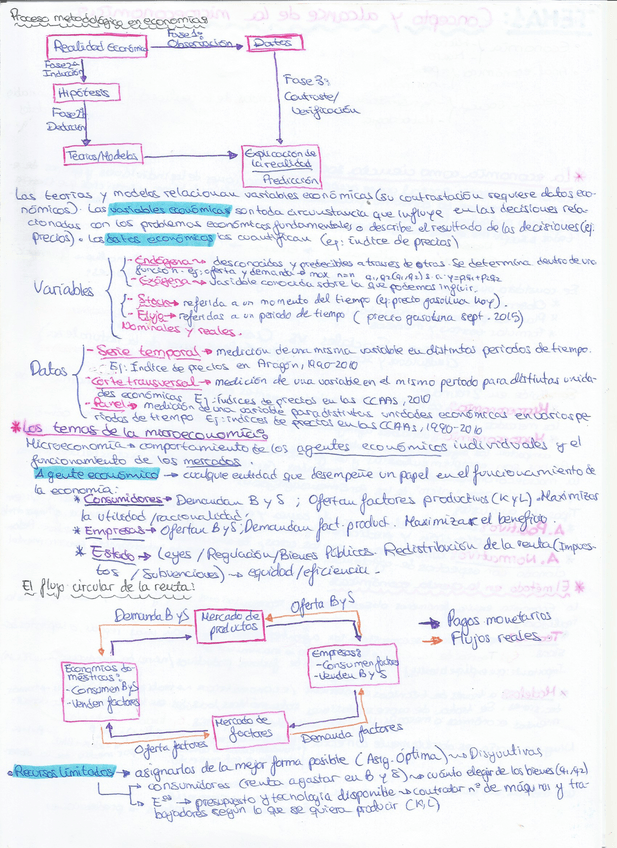 Proceso metodológico en economía:
Realidad Económica
Fase 1: Observación
Datos
Fase 2: Inducción
Hipótesis
Fase 2: Deducción
Fase 3: Contraste/ Verificación
Teorías/Modelos
Explicación de la realidad
Predicción
Las teorías y modelos relacionan variables económicas (su contrastación requiere datos eco-
nómicos). Las variables económicas son toda circunstancia que influye en las decisiones rela-
cionadas con los problemas económicos fundamentales o describe el resultado de las decisiones (ej:
precios). Los datos económicos las cuantifican (ej: índice de precios)
Variables
- Endógena → desconocidas y predecibles a través de otras. Se determina dentro de una
función. ej: oferta y demanda
- Exógena → variable conocida sobre la que podemos influir.
- Stock → referida a un momento del tiempo (ej: precio gasolina hoy).
- Flujo → referidas a un periodo de tiempo ( precio gasolina sept. 2015)
Nominales y reales.
Datos
- Serie temporal → medición de una misma variable en distintos periodos de tiempo.
Ej: Índice de precios en Aragón, 1990-2010
- Corte transversal → medición de una variable en el mismo periodo para distintas unida-
des económicas. Ej: Índices de precios en las CCAAS, 2010
- Panel → medición de una variable para distintas unidades económicas en varios pe-
riodos de tiempo Ej: índices de precios en las CCAAs, 1990-2010
* Los temas de la microeconomía:
Microeconomía → comportamiento de los agentes económicos individuales y el
funcionamiento de los mercados.
Agente económico → cualquier entidad que desempeñe un papel en el funcionamiento de
la economía:
* Consumidores → Demandan B y S ; Ofertan factores productivos (K y L). Maximizar
la utilidad/racionalidad.
* Empresas → Ofertan B y S; Demandan fact. product. Maximizar el beneficio.
* Estado → Leyes / Regulación/Bienes Públicos. Redistribución de la renta (Impues-
tos / Subvenciones) → equidad/eficiencia.
El flujo circular de la renta:
Demanda B y S
Mercado de productos
Oferta B y S
→ Pagos monetarios
→ Flujos reales
Economías do-
mésticas:
- Consumen B y S
- Venden factores
Empresas:
- Consumen factores
- Venden B y S
Oferta factores
Mercado de factores
Demanda factores
• Recursos limitados → asignarlos de la mejor forma posible (Asig. óptima) → Disyuntivas
→ consumidores (renta a gastar en B y S) → cuánto elegir de los bienes (q1, q2)
→ Eˢᵃˢ → presupuesto y tecnología disponible → contratar nº de máquinas y tra-
bajadores según lo que se quiera producir (K, L)